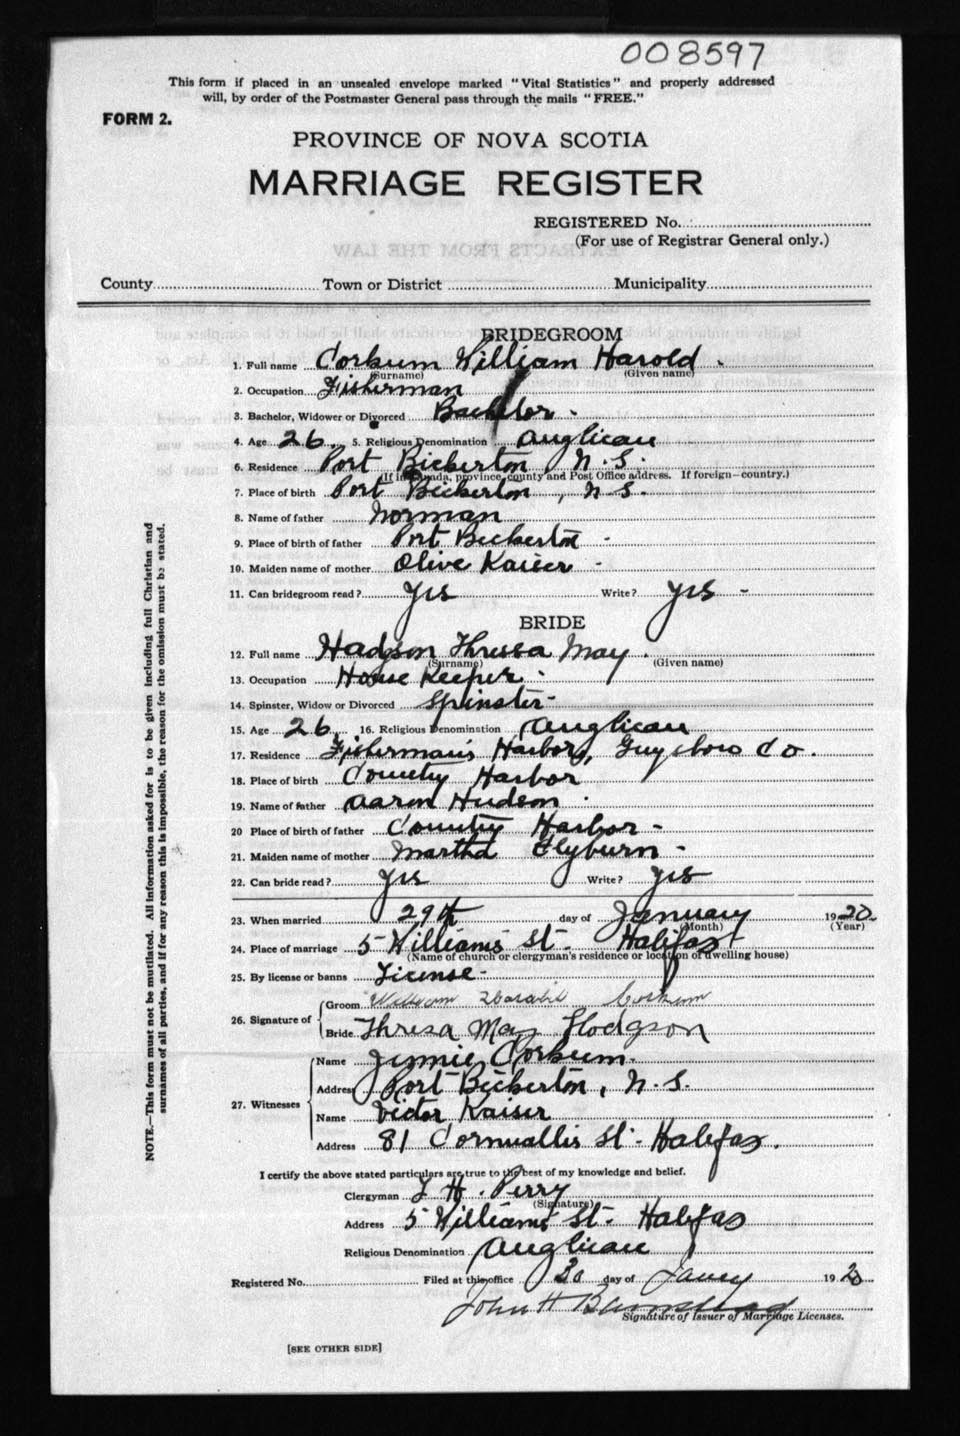 008597
This form if placed in an unsealed envelope marked "Vital Statistics" and properly addressed
will, by order of the Postmaster General pass through the mails "FREE."
FORM 2.
PROVINCE OF NOVA SCOTIA
MARRIAGE REGISTER
REGISTERED No.
(For use of Registrar General only.)
EXTRACTS FROM THE LAW
County Town or District Municipality
BRIDEGROOM
1. Full name Corkum William Harold
(Surname) (Given name)
2. Occupation Fisherman
3. Bachelor, Widower or Divorced Bachelor
4. Age 26 5. Religious Denomination Anglican
6. Residence Port Bickerton, N.S.
(If in Canada, province, county and Post Office address. If foreign—country.)
7. Place of birth Port Bickerton, N.S.
8. Name of father Norman
9. Place of birth of father Port Bickerton
10. Maiden name of mother Olive Kaiser
11. Can bridegroom read? Yes Write? Yes
BRIDE
12. Full name Hadgson Thressa May
(Surname) (Given name)
13. Occupation House Keeper
14. Spinster, Widow or Divorced Spinster
15. Age 26 16. Religious Denomination Anglican
17. Residence Fisherman's Harbor, Guysboro Co.
18. Place of birth Country Harbor
19. Name of father Aaron Hudson
20 Place of birth of father Country Harbor
21. Maiden name of mother Martha
22. Can bride read? Yes Write? Yes
23. When married 29th day of January 1920
(Month) (Year)
24. Place of marriage 5 Williams St. Halifax
(Name of church or clergyman's residence or location of dwelling house)
25. By license or banns License
26. Signature of Groom William Harold Corkum
Bride Thresa May Hodgson
27. Witnesses Name Jennie Corkum
Address Port Bickerton, N.S.
Name Victor Kaiser
Address 81 Cornwallis St. Halifax.
I certify the above stated particulars are true to the best of my knowledge and belief.
Clergyman H. Perry
(Signature)
Address 5 Williams St. Halifax
Religious Denomination Anglican
Registered No. Filed at this office 30 day of Jany 1920
John H Barnstead
Signature of Issuer of Marriage Licenses.
[SEE OTHER SIDE]
NOTE.—This form must not be mutilated. All information asked for is to be given including full Christian and
surnames of all parties, and if for any reason this is impossible, the reason for the omission must be stated.